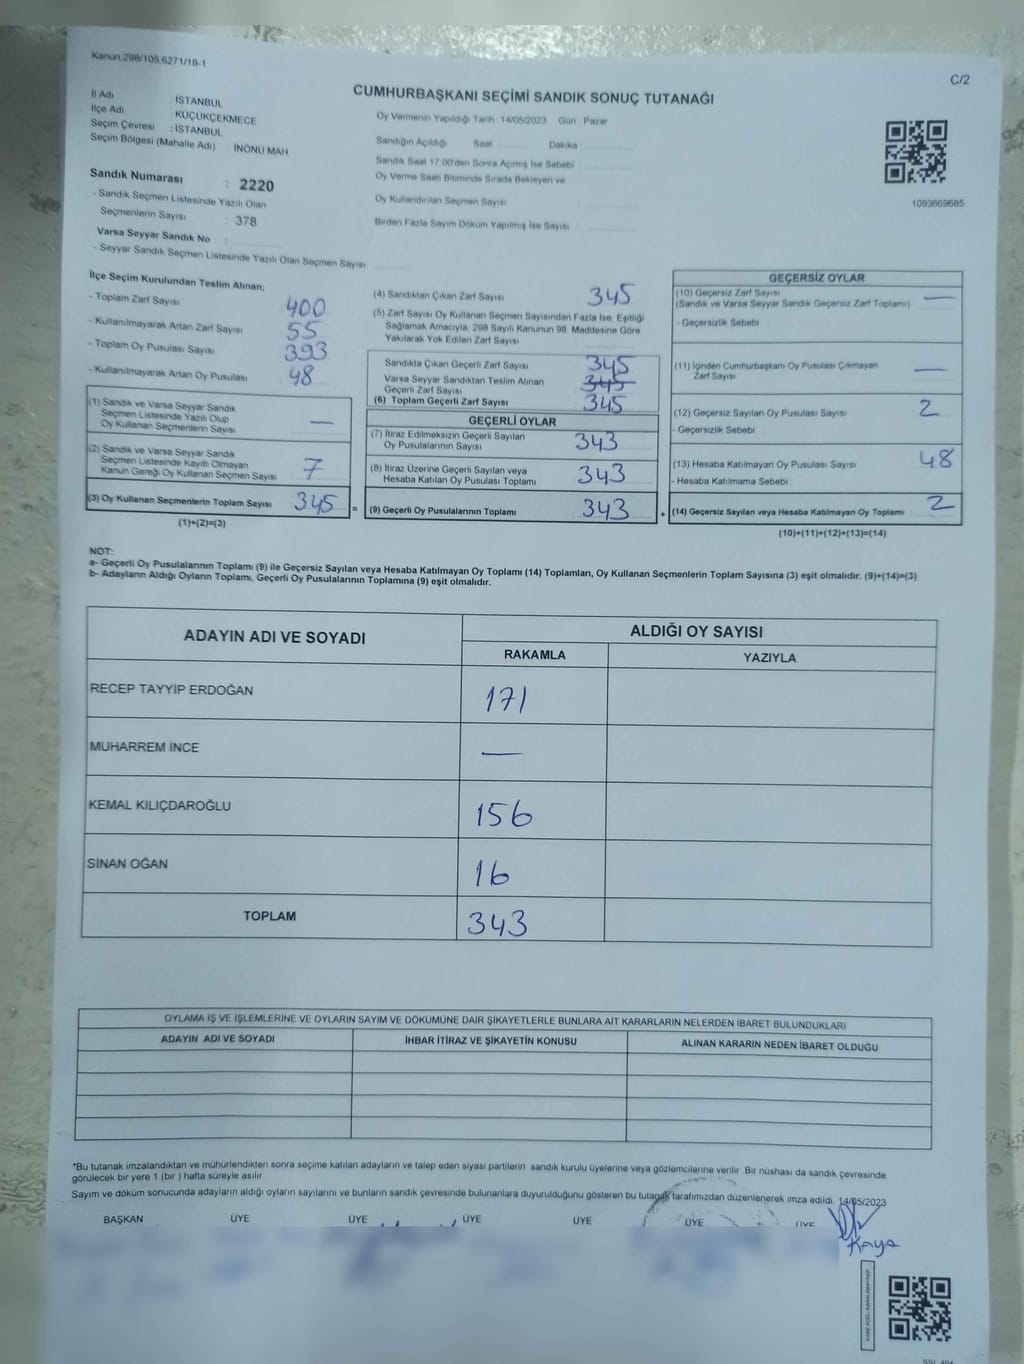 Kanun,298/105,6271/18-1
C/2
CUMHURBAŞKANI SEÇİMİ SANDIK SONUÇ TUTANAĞI
İl Adı : İSTANBUL
İlçe Adı : KÜÇÜKÇEKMECE
Seçim Çevresi : İSTANBUL
Seçim Bölgesi (Mahalle Adı) : İNÖNÜ MAH
Sandık Numarası : 2220
- Sandık Seçmen Listesinde Yazılı Olan
Seçmenlerin Sayısı : 378
Varsa Seyyar Sandık No :
- Seyyar Sandık Seçmen Listesinde Yazılı Olan Seçmen Sayısı
Oy Vermenin Yapıldığı Tarih : 14/05/2023 Gün : Pazar
Sandığın Açıldığı Saat Dakika
Sandık Saat 17:00'den Sonra Açımış İse Sebebi
Oy Verme Saati Bitiminde Sırada Bekleyen ve
Oy Kullandırılan Seçmen Sayısı
Birden Fazla Sayım Döküm Yapılmış İse Sayısı
1093669685
İlçe Seçim Kurulundan Teslim Alınan;
- Toplam Zarf Sayısı 400
- Kullanılmayarak Artan Zarf Sayısı 55
- Toplam Oy Pusulası Sayısı 393
- Kullanılmayarak Artan Oy Pusulası 48
(1) Sandık ve Varsa Seyyar Sandık
Seçmen Listesinde Yazılı Olup
Oy Kullanan Seçmenlerin Sayısı —
(2) Sandık ve Varsa Seyyar Sandık
Seçmen Listesinde Kayıtlı Olmayan
Kanun Gereği Oy Kullanan Seçmen Sayısı 7
(3) Oy Kullanan Seçmenlerin Toplam Sayısı 345 =
(1)+(2)=(3)
(4) Sandıktan Çıkan Zarf Sayısı 345
(5) Zarf Sayısı Oy Kullanan Seçmen Sayısından Fazla İse, Eşitliği
Sağlamak Amacıyla, 298 Sayılı Kanunun 98. Maddesine Göre
Yakılarak Yok Edilen Zarf Sayısı
Sandıkta Çıkan Geçerli Zarf Sayısı 345
Varsa Seyyar Sandıktan Teslim Alınan
Geçerli Zarf Sayısı 345
(6) Toplam Geçerli Zarf Sayısı 345
GEÇERLİ OYLAR
(7) İtiraz Edilmeksizin Geçerli Sayılan
Oy Pusulalarının Sayısı 343
(8) İtiraz Üzerine Geçerli Sayılan veya
Hesaba Katılan Oy Pusulası Toplamı 343
(9) Geçerli Oy Pusulalarının Toplamı 343 +
GEÇERSİZ OYLAR
(10) Geçersiz Zarf Sayısı
(Sandık ve Varsa Seyyar Sandık Geçersiz Zarf Toplamı) —
- Geçersizlik Sebebi
(11) İçinden Cumhurbaşkanı Oy Pusulası Çıkmayan
Zarf Sayısı —
(12) Geçersiz Sayılan Oy Pusulası Sayısı 2
- Geçersizlik Sebebi
(13) Hesaba Katılmayan Oy Pusulası Sayısı 48
- Hesaba Katılmama Sebebi
(14) Geçersiz Sayılan veya Hesaba Katılmayan Oy Toplamı 2
(10)+(11)+(12)+(13)=(14)
NOT:
a- Geçerli Oy Pusulalarının Toplamı (9) ile Geçersiz Sayılan veya Hesaba Katılmayan Oy Toplamı (14) Toplamları, Oy Kullanan Seçmenlerin Toplam Sayısına (3) eşit olmalıdır. (9)+(14)=(3)
b- Adayların Aldığı Oyların Toplamı, Geçerli Oy Pusulalarının Toplamına (9) eşit olmalıdır.
ADAYIN ADI VE SOYADI ALDIĞI OY SAYISI
RAKAMLA YAZIYLA
RECEP TAYYİP ERDOĞAN 171
MUHARREM İNCE —
KEMAL KILIÇDAROĞLU 156
SİNAN OĞAN 16
TOPLAM 343
OYLAMA İŞ VE İŞLEMLERİNE VE OYLARIN SAYIM VE DÖKÜMÜNE DAİR ŞİKAYETLERLE BUNLARA AİT KARARLARIN NELERDEN İBARET BULUNDUKLARI
ADAYIN ADI VE SOYADI İHBAR İTİRAZ VE ŞİKAYETİN KONUSU ALINAN KARARIN NEDEN İBARET OLDUĞU
*Bu tutanak imzalandıktan ve mühürlendikten sonra seçime katılan adayların ve talep eden siyasi partilerin sandık kurulu üyelerine veya gözlemcilerine verilir. Bir nüshası da sandık çevresinde
görülecek bir yere 1 (bir) hafta süreyle asılır.
Sayım ve döküm sonucunda adayların aldığı oyların sayılarını ve bunların sandık çevresinde bulunanlara duyurulduğunu gösteren bu tutanak tarafımızdan düzenlenerek imza edildi. 14/05/2023
BAŞKAN ÜYE ÜYE ÜYE ÜYE ÜYE ÜYE
Kaya